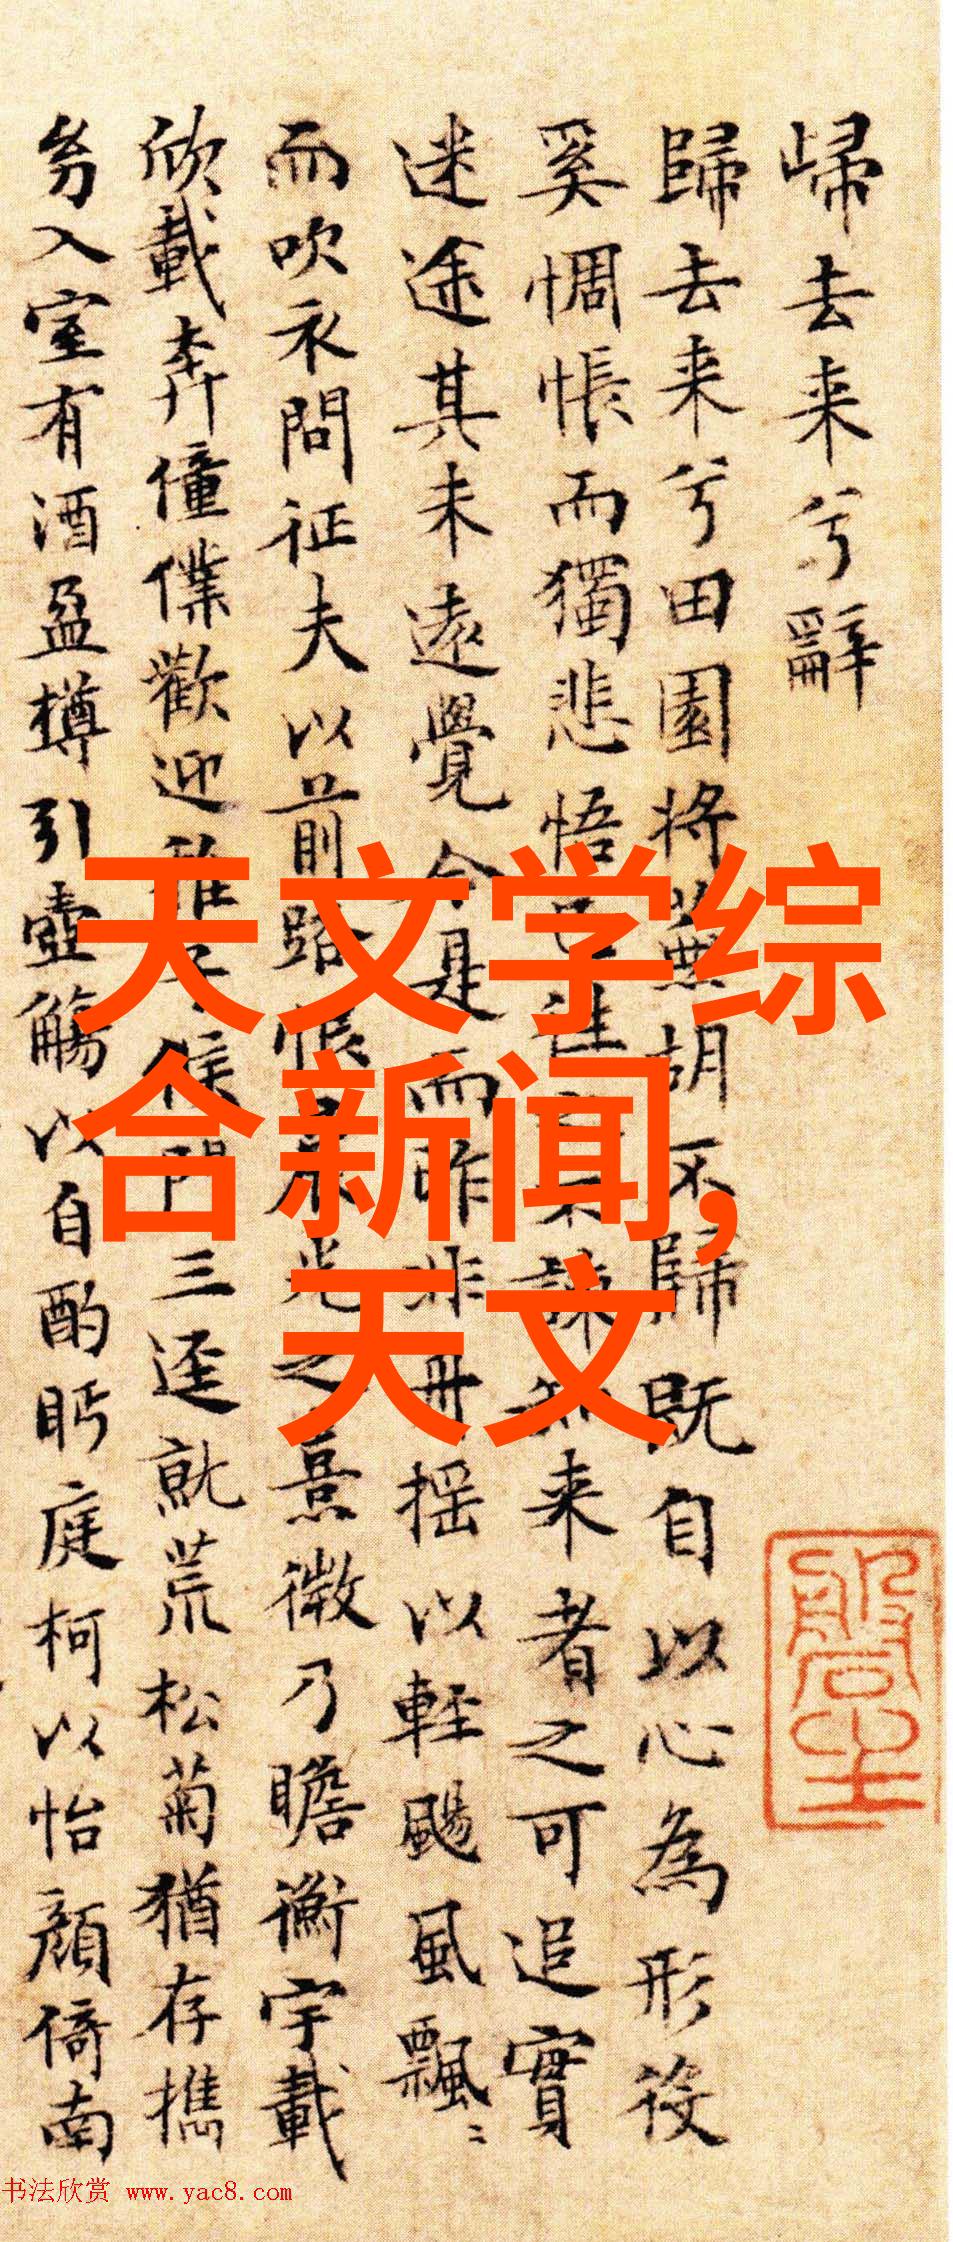 歸去来兮辭
歸去来兮田園将蕪胡不歸既自以心為形役
奚惆悵而獨悲悟已往之不諫知来者之可追實
迷途其未遠覺今是而昨非舟揺以輕颺風飄〻
而吹衣問征夫以前路恨晨光之熹微乃瞻衡宇載
欣載奔僮僕歡迎稚子候門三逕就荒松菊猶存携
㓜入室有酒盈樽引壺觴以自酌眄庭柯以怡顔倚南
天文学综
合新闻,
天文
书法欣赏 www.yac8.com